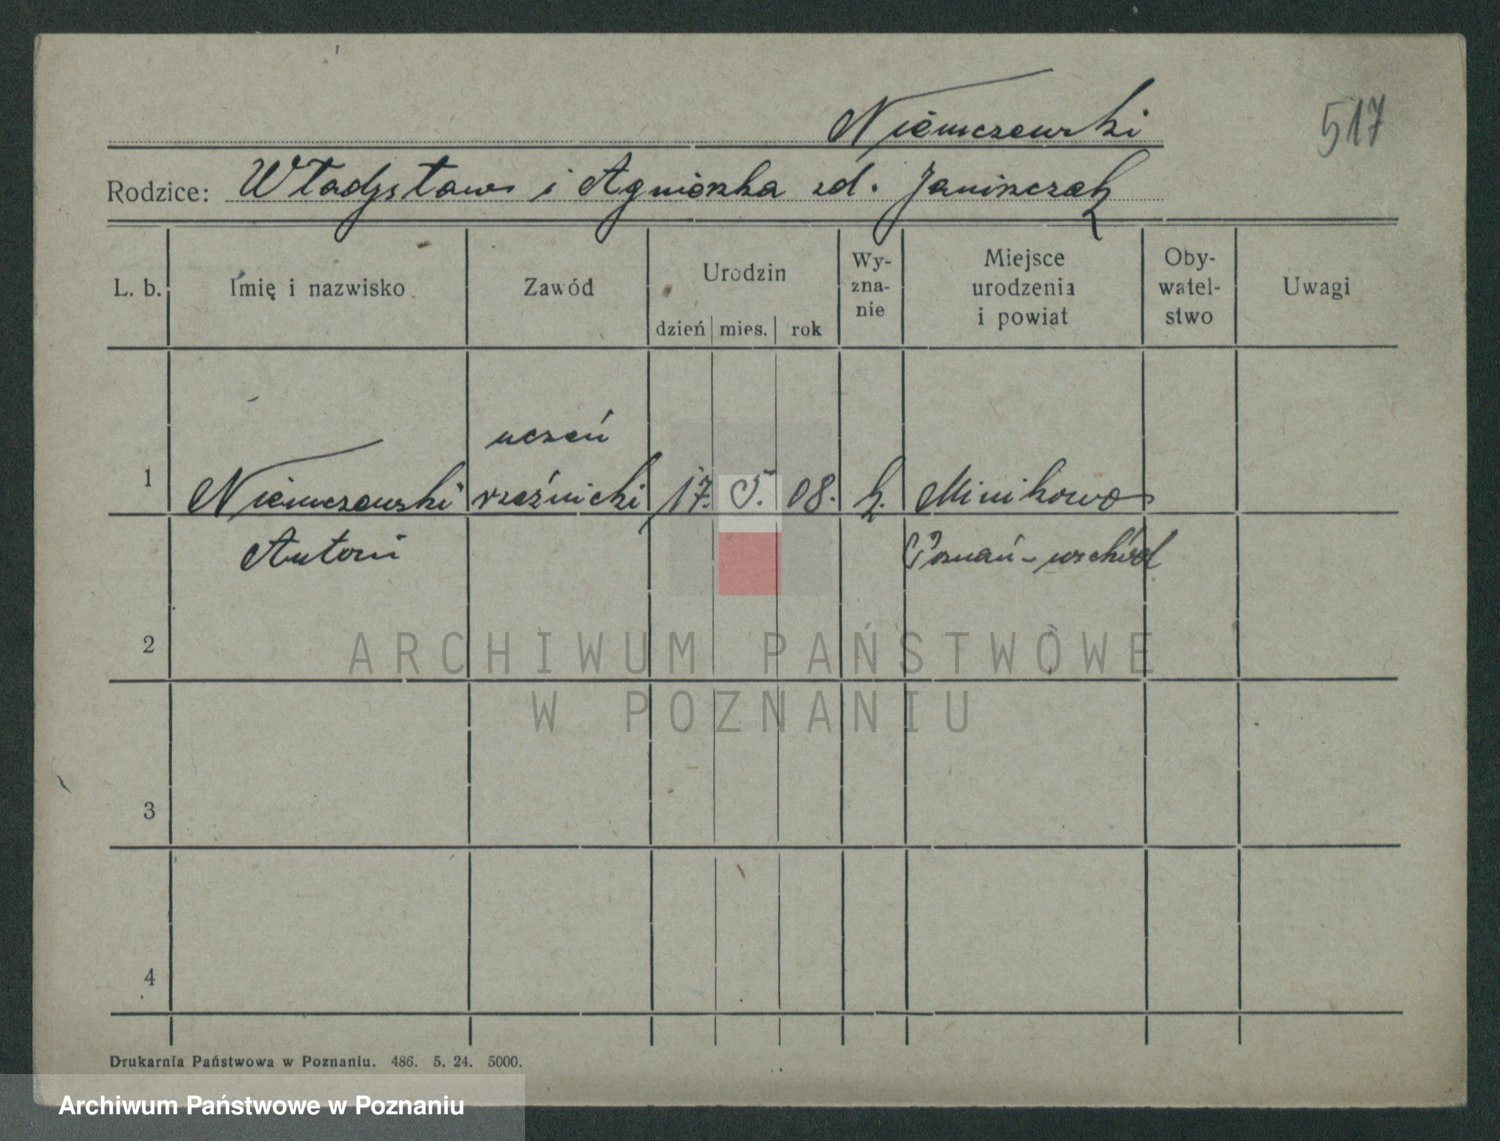 Niemczewski
517
Rodzice: Władysław i Agnieszka zd. Janiszczak
L. b.
Imię i nazwisko
Zawód
Urodzin
dzień mies. rok
Wy-
zna-
nie
Miejsce
urodzenia
i powiat
Oby-
watel-
stwo
Uwagi
uczeń
1 Niemczewski rzeźnicki 17. 5. 08. k. Minikowo
Antoni Poznań-wschód
2
ARCHIWUM PAŃSTWOWE
W POZNANIU
3
4
Drukarnia Państwowa w Poznaniu. 486. 5. 24. 5000.
Archiwum Państwowe w Poznaniu